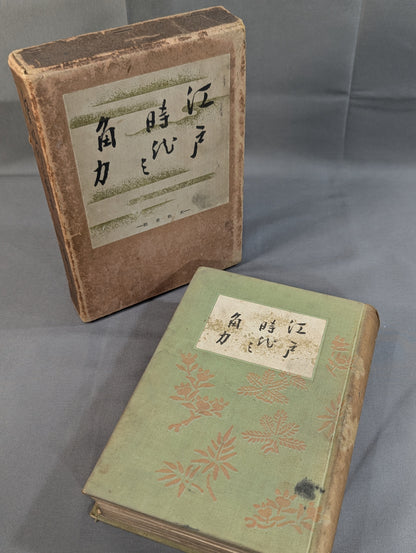 江戸
時代之
角力
江戸
時代之
角力